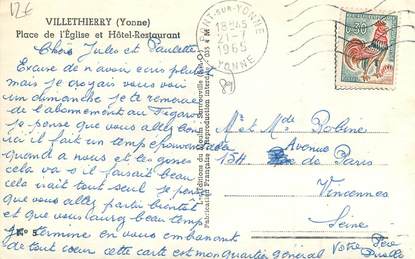 12€
VILLETHIERRY (Yonne)
Place de l'Église et Hôtel-Restaurant
PONT-SUR-YONNE
18H45
21-7
1965
YONNE
0,30
(89)
Chers Jules et Paulette
Excuse de n'avoir ecris plus
mais je croyais vous voir
un dimanche, je te remercie
de l'abonnement au Figaro
je pense que vous allez bien
ici il fait un temp épouvan
quand a nous et les gones
cela va s il faisait beau
cela irait tout seul je pense
que vous allez partir bientôt
et que vous aurez beau temp
Je termine en vous embrassant
de tout cœur cette carte est mon quartier General
Votre Père
Mr et Mde Robine
15H Avenue
de Paris
Vincennes
Seine
Fabrication Française - Reproduction interdite
N° 5